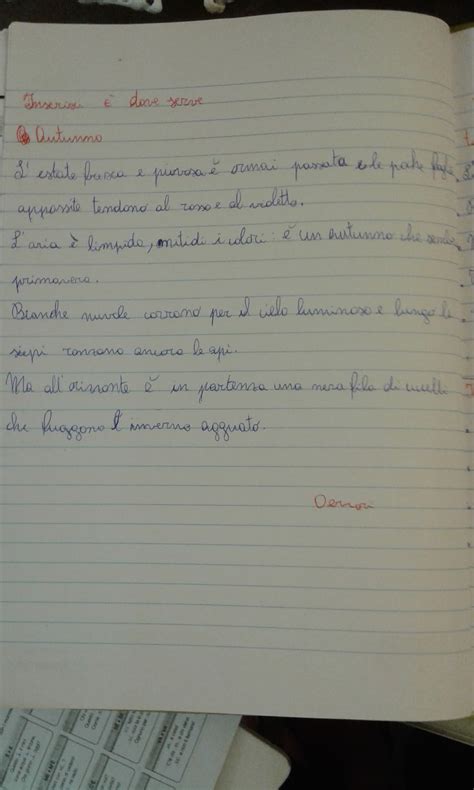 Inserisci è dove serve
Autunno
L'estate fresca e piovosa è ormai passata e le poche foglie
appassite tendono al rosso e al violetto.
L'aria è limpida, nitidi i colori: è un autunno che sembra
primavera.
Bianche nuvole corrono per il cielo luminoso e lungo le
siepi ronzano ancora le api.
Ma all'orizzonte è in partenza una nera fila di uccelli
che fuggono l'inverno agguato.